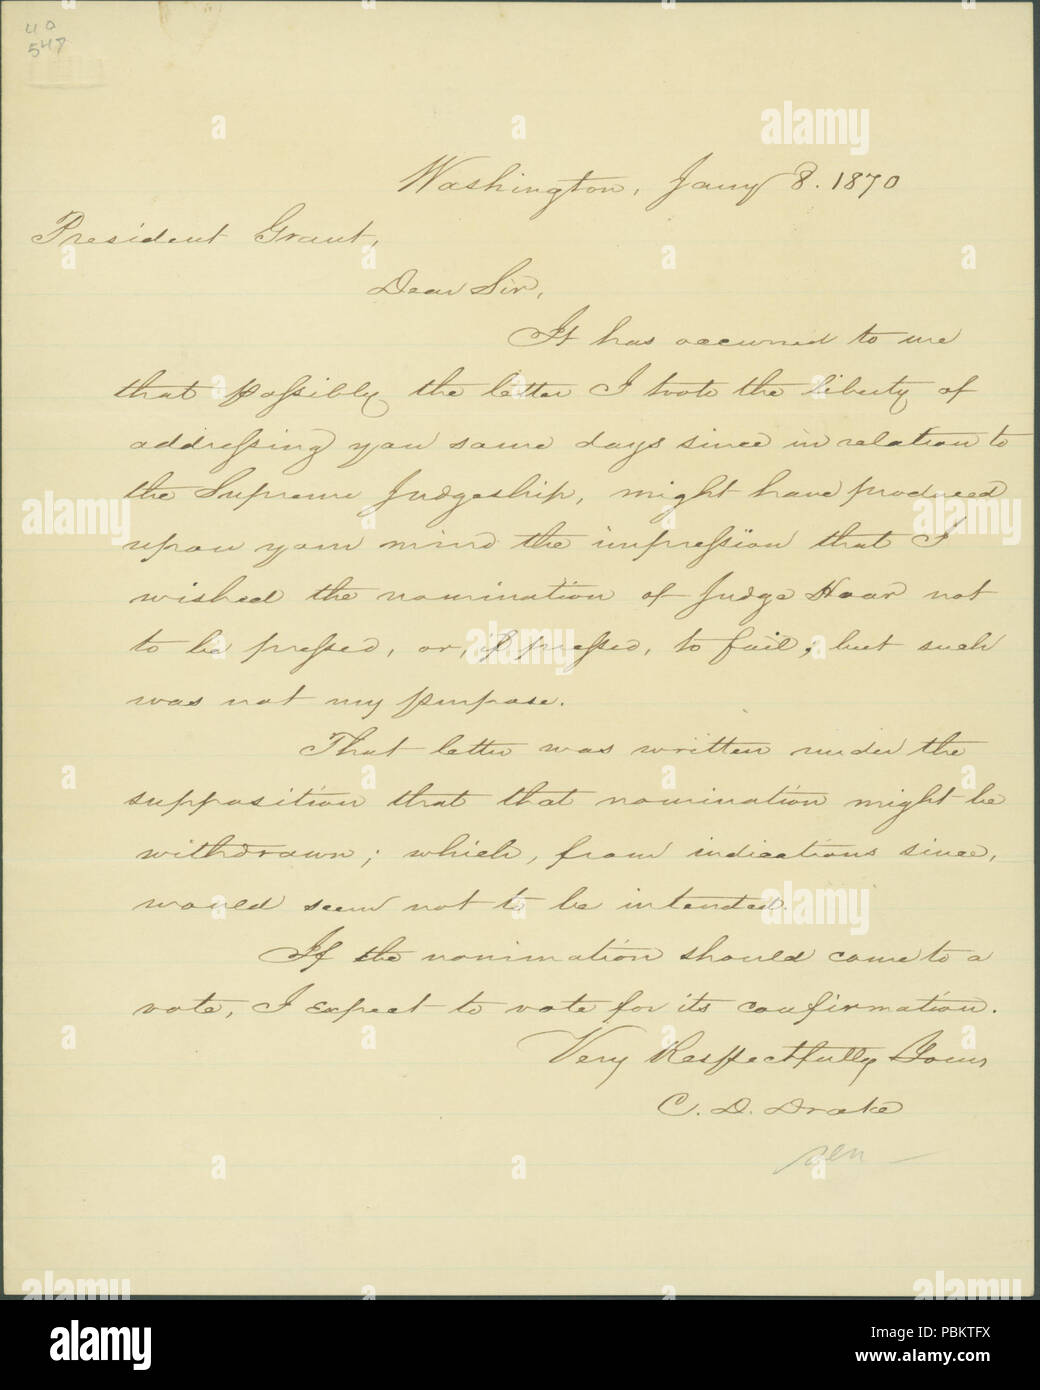 40
548
Washington, Jany 8. 1870
President Grant,
Dear Sir,
It has occurred to me
that possibly the letter I took the liberty of
addressing you some days since in relation to
the Supreme Judgeship, might have produced
upon your mind the impression that I
wished the nomination of Judge Hoar not
to be pressed, or, if pressed, to fail; but such
was not my purpose.
That letter was written under the
supposition that that nomination might be
withdrawn; which, from indications since,
would seem not to be intended.
If the nomination should come to a
vote, I expect to vote for its confirmation.
Very Respectfully Yours
C. D. Drake
Sen
alamy
Image ID: PBKTFX
www.alamy.com